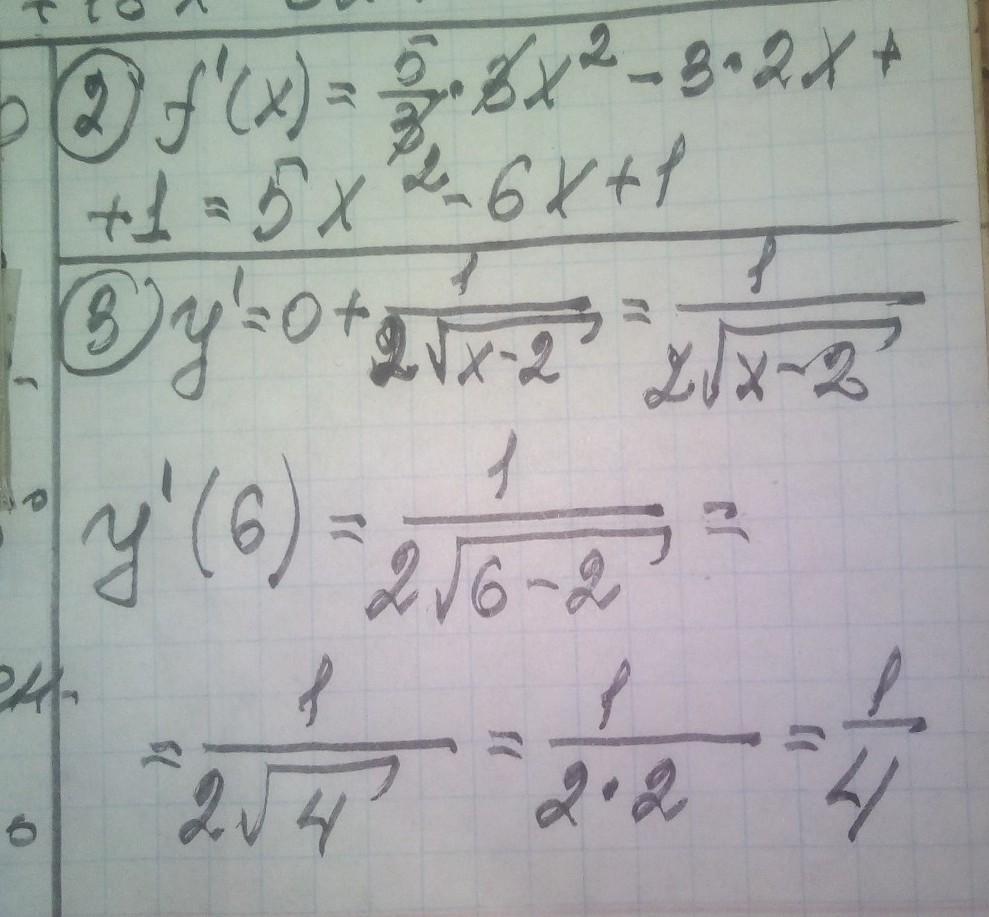 ② f'(x) = 5/3 · 3x² - 3·2x +
+1 = 5x² - 6x + 1
③ y' = 0 + 1/(2√(x-2)) = 1/(2√(x-2))
y'(6) = 1/(2√(6-2)) =
= 1/(2√4) = 1/(2·2) = 1/4